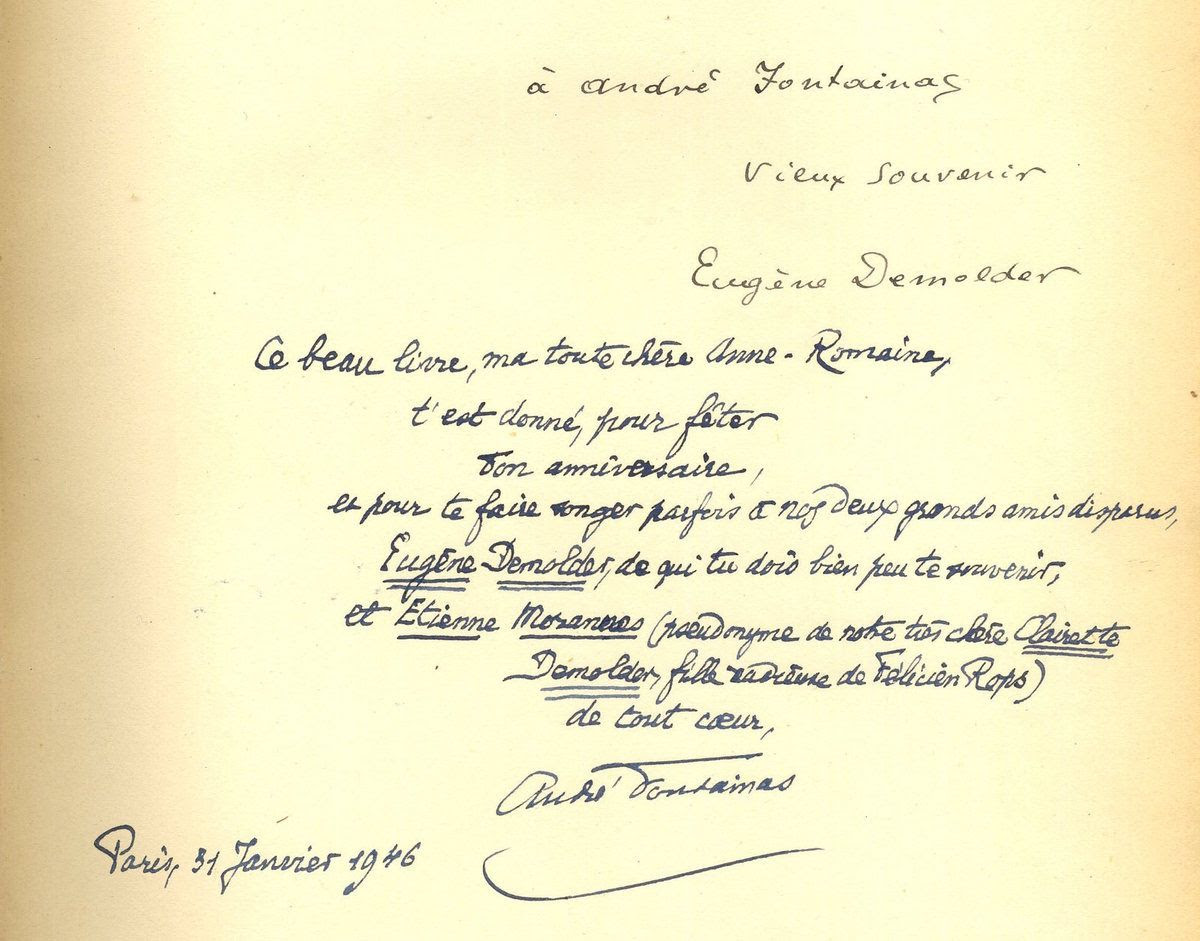 à André Fontainas
Vieux Souvenir
Eugène Demolder
Ce beau livre, ma toute chère Anne-Romaine,
t'est donné, pour fêter
ton anniversaire,
et pour te faire songer parfois à nos deux grands amis disparus,
Eugène Demolder, de qui tu dois bien peu te souvenir,
et Etienne Morannes (pseudonyme de notre très chère Clairette
Demolder, fille radieuse de Félicien Rops)
de tout cœur,
André Fontainas
Paris, 31 Janvier 1946